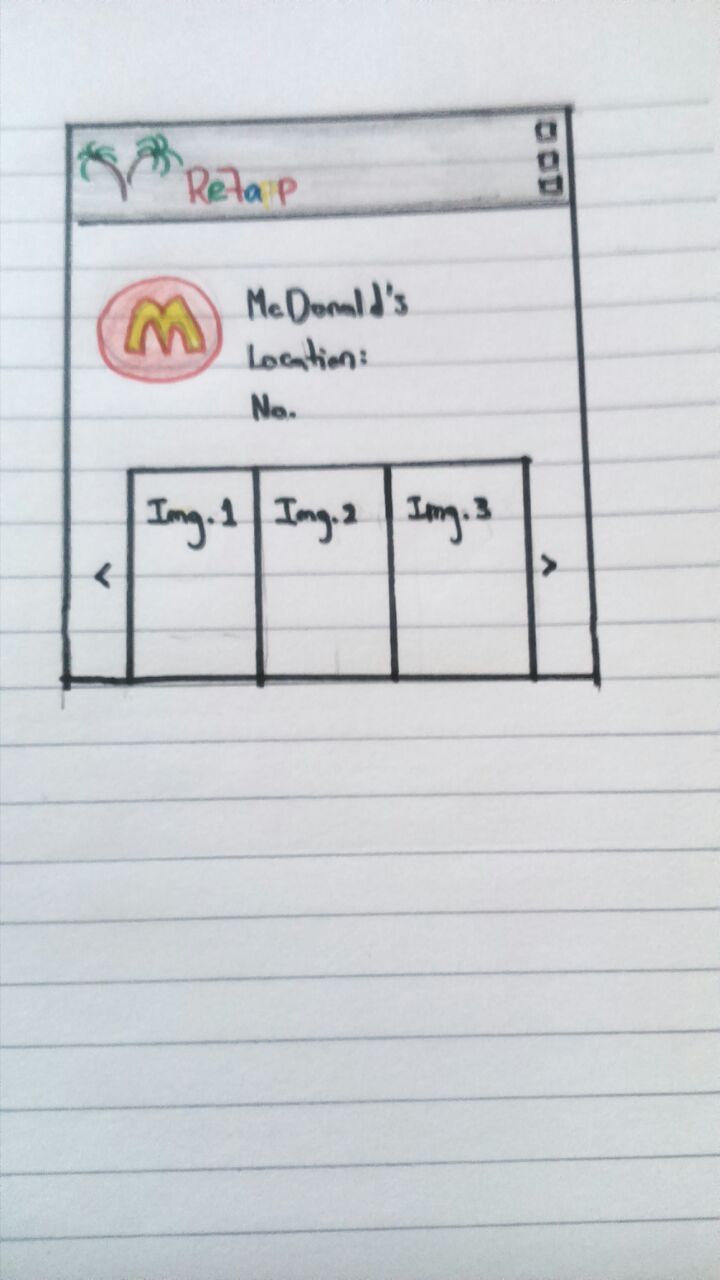 Re7app
M
McDonald's
Location:
No.
Img. 1
Img. 2
Img. 3
< >